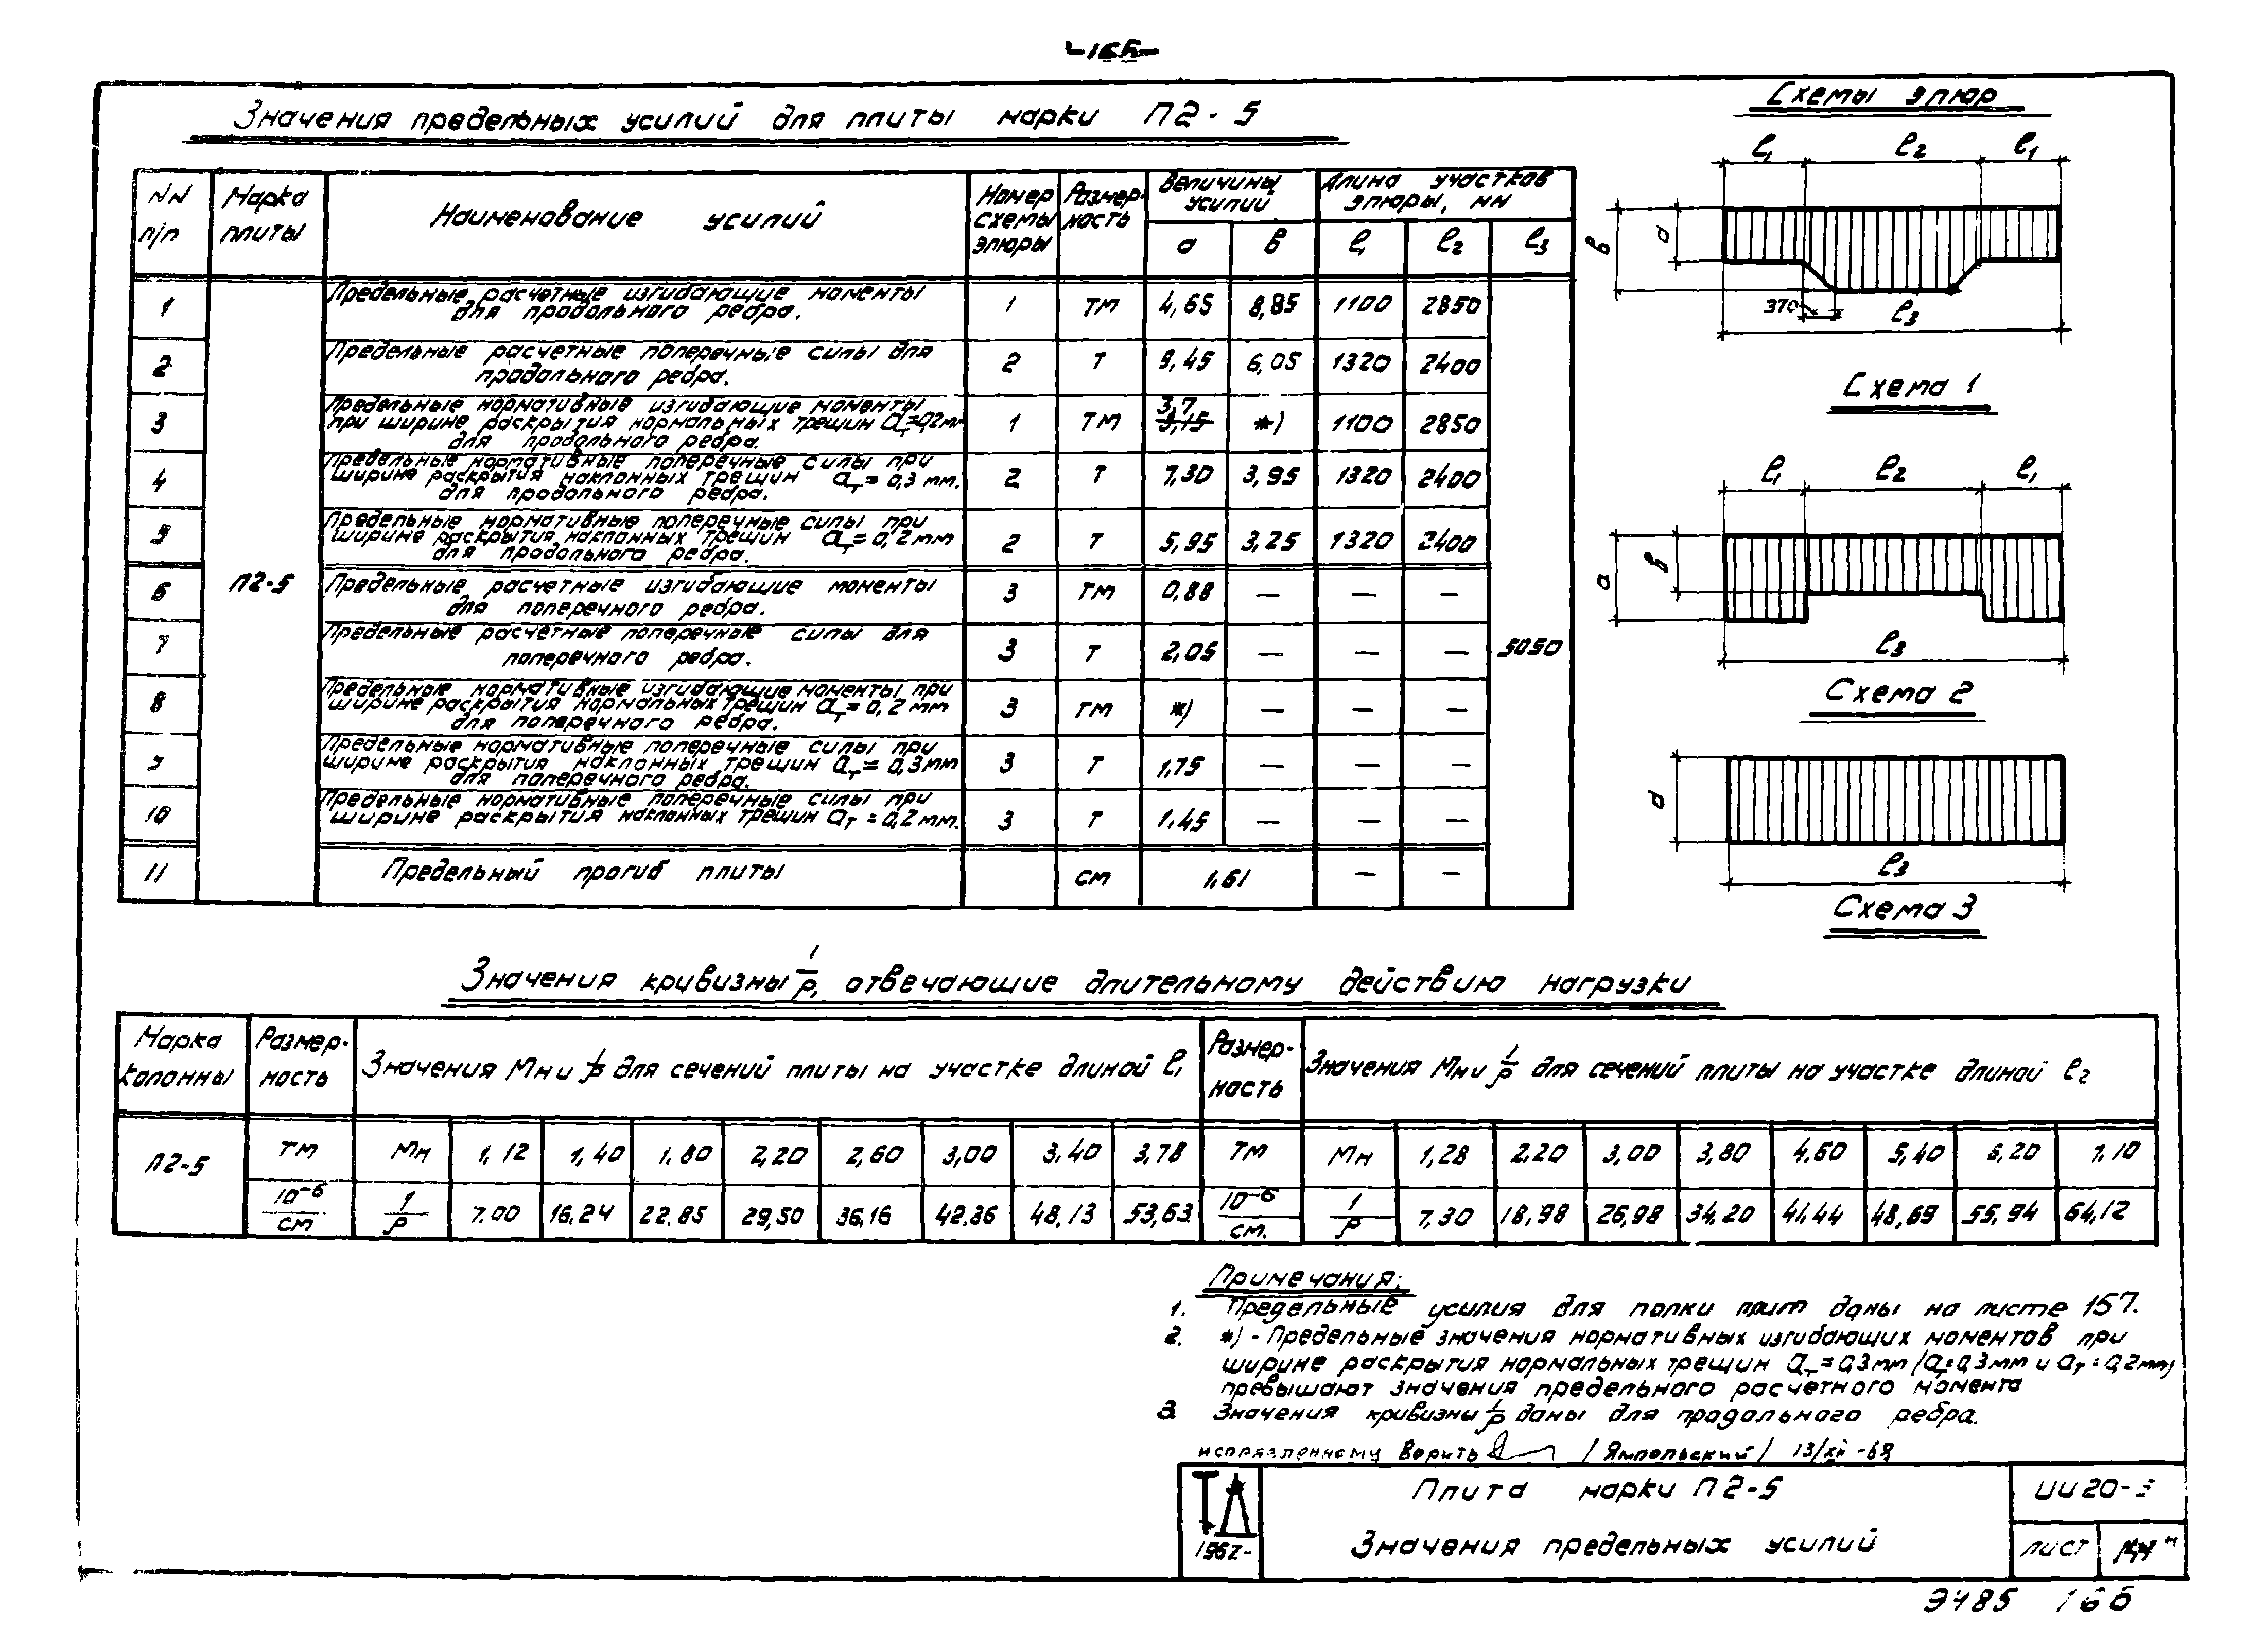 Значения предельных усилий для плиты марки П2-5
Схемы эпюр
NN п/п | Марка плиты | Наименование усилий | Номер схемы эпюры | Размерность | Величины усилий | Длина участков эпюры, мм
а | в | ℓ1 | ℓ2 | ℓ3
1 | Предельные расчетные изгибающие моменты для продольного ребра. | 1 | тм | 4,65 | 8,85 | 1100 | 2850
2 | Предельные расчетные поперечные силы для продольного ребра. | 2 | т | 9,45 | 6,05 | 1320 | 2400
3 | Предельные нормативные изгибающие моменты при ширине раскрытия нормальных трещин aт=0,2мм для продольного ребра. | 1 | тм | 3,7 | *) | 1100 | 2850
4 | Предельные нормативные поперечные силы при ширине раскрытия наклонных трещин aт=0,3 мм. для продольного ребра. | 2 | т | 7,30 | 3,95 | 1320 | 2400
5 | Предельные нормативные поперечные силы при ширине раскрытия наклонных трещин aт=0,2мм для продольного ребра. | 2 | т | 5,95 | 3,25 | 1320 | 2400
П2-5
6 | Предельные расчетные изгибающие моменты для поперечного ребра. | 3 | тм | 0,88 | — | — | —
7 | Предельные расчетные поперечные силы для поперечного ребра. | 3 | т | 2,05 | — | — | — | 5050
8 | Предельные нормативные изгибающие моменты при ширине раскрытия нормальных трещин aт=0,2 мм для поперечного ребра. | 3 | тм | *) | — | — | —
9 | Предельные нормативные поперечные силы при ширине раскрытия наклонных трещин aт=0,3мм для поперечного ребра. | 3 | т | 1,75 | — | — | —
10 | Предельные нормативные поперечные силы при ширине раскрытия наклонных трещин aт=0,2мм. | 3 | т | 1.45 | — | — | —
11 | Предельный прогиб плиты | см | 1,61 | — | —
ℓ1 ℓ2 ℓ1
в а
370 ℓ3
Схема 1
ℓ1 ℓ2 ℓ1
а в
ℓ3
Схема 2
а
ℓ3
Схема 3
Значения кривизны 1/ρ, отвечающие длительному действию нагрузки
Марка колонны | Размерность | Значения Mн и 1/ρ для сечений плиты на участке длиной ℓ1 | Размерность | Значения Mн и 1/ρ для сечений плиты на участке длиной ℓ2
П2-5 | тм | Mн | 1,12 | 1,40 | 1,80 | 2,20 | 2,60 | 3,00 | 3,40 | 3,78 | тм | Mн | 1,28 | 2,20 | 3,00 | 3,80 | 4,60 | 5,40 | 6,20 | 7,10
10⁻⁶/см | 1/ρ | 7,00 | 16,24 | 22,85 | 29,50 | 36,16 | 42,36 | 48,13 | 53,63 | 10⁻⁶/см. | 1/ρ | 7,30 | 18,98 | 26,98 | 34,20 | 41,44 | 48,69 | 55,94 | 64,12
Примечания:
1. Предельные усилия для полки плит даны на листе 157.
2. *) - Предельные значения нормативных изгибающих моментов при
ширине раскрытия нормальных трещин aт=0,3мм /aт=0,3мм и aт=0,2мм/
превышают значения предельного расчетного момента
3 Значения кривизны 1/ρ даны для продольного ребра.
исправленному Верить /Ямпольский/ 13/XII-69
ТА
Плита марки П2-5
ИИ20-3
1967-
Значения предельных усилий
лист
3485 166